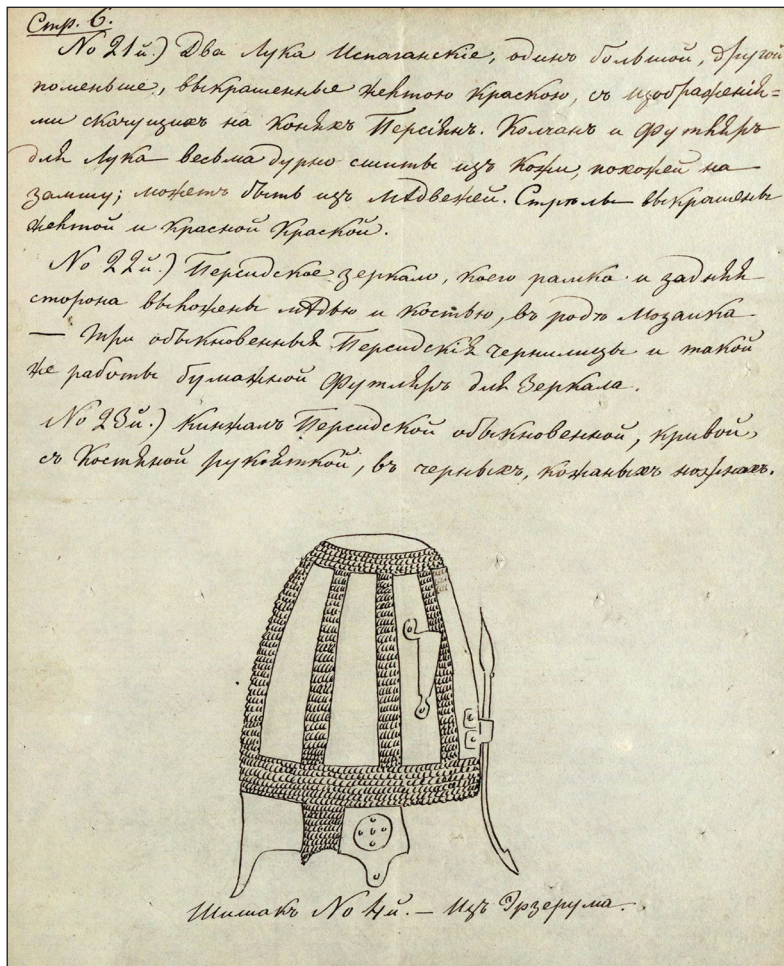 Стр. 6.
No 21й.) Два Лука Испаганскіе, одинъ большой, другой
поменьше, выкрашенные желтою краскою, съ изображенія=
ми скачущихъ на Коняхъ Персіянъ. Колчан и Футляръ
для Лука весьма дурно сшиты изъ Кожи, похожей на
замшу; можетъ быть изъ мѣдвежей. Стрѣлы выкрашены
желтой и Красной Краской.
No 22й.) Персидское зеркало, коего рамка и задняя
сторона выложены мѣдью и костью, въ родѣ Мозаика
— три обыкновенныя Персидскія чернилицы и такой
же работы бумажной Футляръ для Зеркала.
No 23й.) Кинжалъ Персидской обыкновенной, кривой,
съ Костяной рукояткой, въ черныхъ, кожаныхъ ножнахъ.
Шишакъ No 4й. — Изъ Эрзерума.